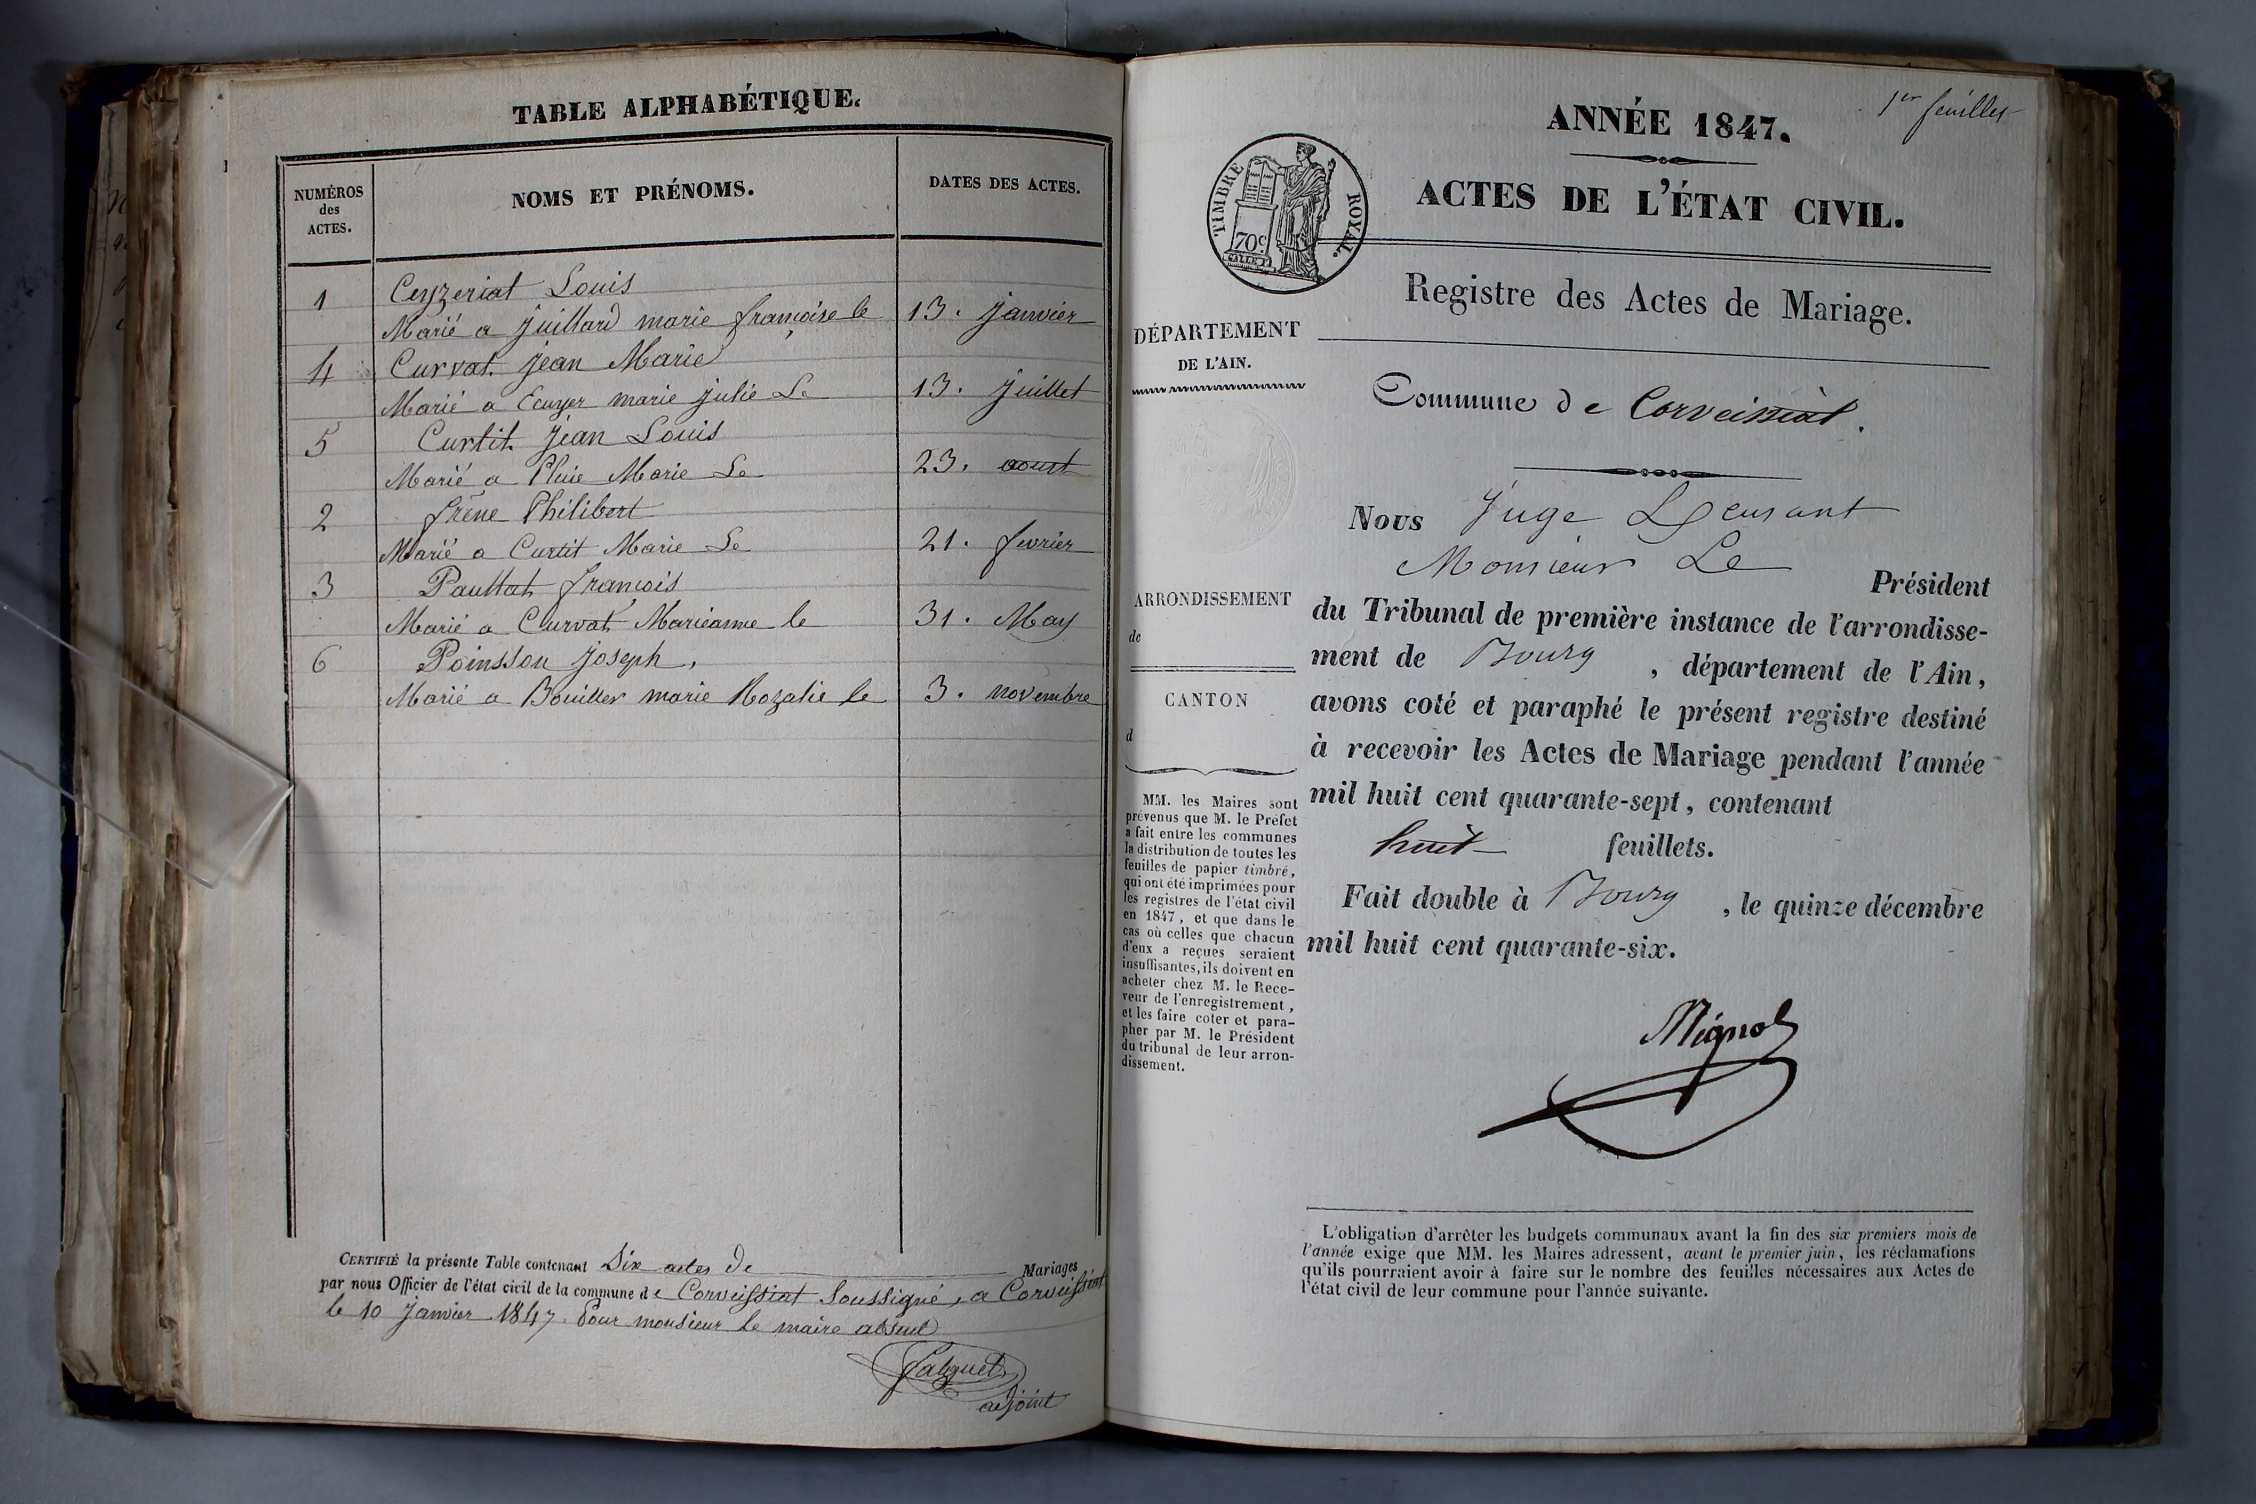 TABLE ALPHABÉTIQUE.
NUMÉROS
des
ACTES.
NOMS ET PRÉNOMS.
DATES DES ACTES.
1 Ceyzeriat Louis
Marié a juillard marie françoise le 13. janvier
4 Curvat jean Marie
Marié a Ecuyer marie julie Le 13. juillet
5 Curtit jean Louis
Marié a Pluie Marie Le 23. aoust
2 frêne Philibert
Marié a Curtit Marie Le 21. fevrier
3 Pauttat françois
Marié a Curvat Marieanne le 31. May
6 Poinsson joseph,
Marié a Bouiller marie Rozalie le 3. novembre
CERTIFIÉ la présente Table contenant Six actes de Mariages
par nous Officier de l'état civil de la commune de Corveissiat Soussigné, a Corveissiat
le 10 janvier 1847. Pour monsieur le maire absent
adjoint
1er feuillet
ANNÉE 1847.
ACTES DE L'ÉTAT CIVIL.
TIMBRE ROYAL.
70c
Registre des Actes de Mariage.
DÉPARTEMENT
DE L'AIN.
Commune de Corveissiat.
Nous juge
Monsieur Le Président
du Tribunal de première instance de l'arrondisse-
ment de Bourg, département de l'Ain,
avons coté et paraphé le présent registre destiné
à recevoir les Actes de Mariage pendant l'année
mil huit cent quarante-sept, contenant
huit feuillets.
Fait double à Bourg, le quinze décembre
mil huit cent quarante-six.
Mignot
ARRONDISSEMENT
de
CANTON
d
MM. les Maires sont
prévenus que M. le Préfet
a fait entre les communes
la distribution de toutes les
feuilles de papier timbré,
qui ont été imprimées pour
les registres de l'état civil
en 1847, et que dans le
cas où celles que chacun
d'eux a reçues seraient
insuffisantes, ils doivent en
acheter chez M. le Rece-
veur de l'enregistrement,
et les faire coter et para-
pher par M. le Président
du tribunal de leur arron-
dissement.
L'obligation d'arrêter les budgets communaux avant la fin des six premiers mois de
l'année exige que MM. les Maires adressent, avant le premier juin, les réclamations
qu'ils pourraient avoir à faire sur le nombre des feuilles nécessaires aux Actes de
l'état civil de leur commune pour l'année suivante.